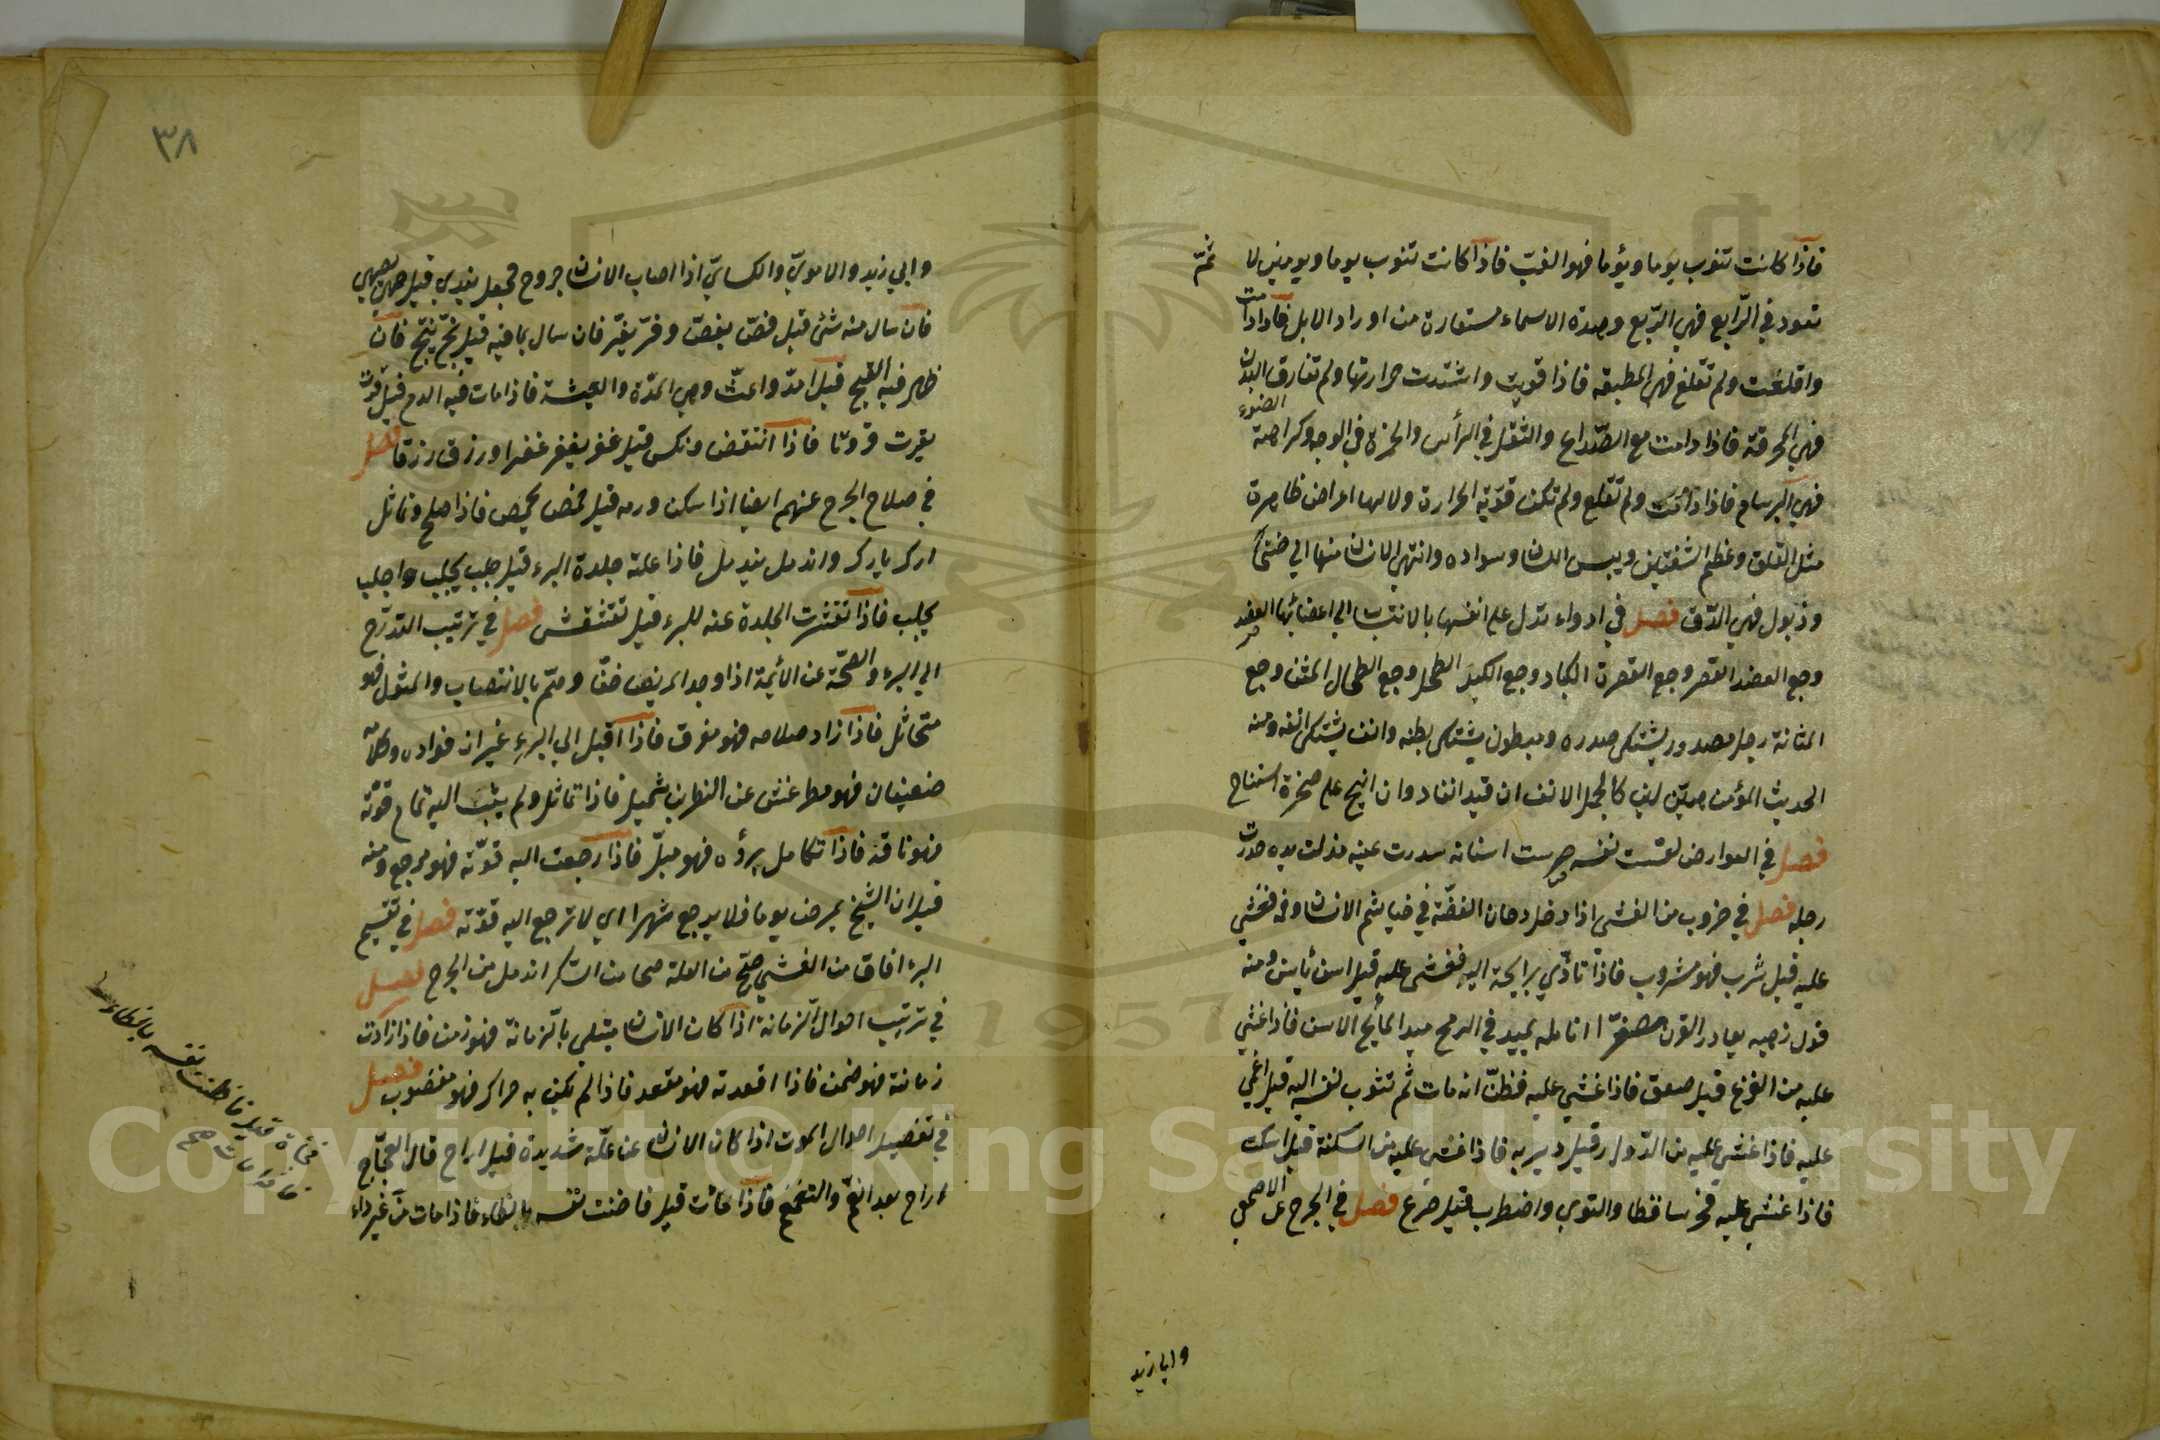 فاذا كانت تنوب يوما ويوما فهو الغب فاذا كانت تنوب يوما ويومين لا ثمّ
تعود في الرّابع فهي الرّبع وهذه الاسماء مستعارة من اوراد الابل فاذا دامت
واقلعت ولم تقلع فهي المطبقه فاذا قويت واشتدت حرارتها ولم تفارق البدن
فهي المحرقة فاذا دامت مع الصّداع والثقل في الرأس والحمرة في الوجه وكراهة الضوء
فهي البرسام فاذا دامت ولم تقلع ولم تكن قوّية الحرارة ولا لها اعراض ظاهرة
مثل القلق وعظم الشفتين ويبس اللسان وسواده وانتهى الانسان منها الي ضنى
وذبول فهي الدّق فصل في ادواء تدل على انفسها بالانتساب الي اعضائها العضد
وجع العضد القصر وجع القصرة الكباد وجع الكبد الطحل وجع الطحال المثن وجع
المثانة رجل مصدور يشتكي صدره ومبطون يشتكي بطنه وانف يشتكي انفه ومنه
الحديث المؤمن هيّن لين كالجمل الانف ان قيد انقاد وان انيخ على صخرة استناخ
فصل في العوارض لقست نفسه ضرست اسنانه سدرت عينه مذلت يده خدرت
رجله فصل في ضروب من الغشى اذا دخل دخان الفضّة في خياشيم الانسان وفمه فغشي
عليه قيل شرب فهو مشروب فاذا تاذّي برايحة البير فغشى عليه قيل اسن ياسن ومنه
قول زهير يغادر القرن مصفرّا انامله يميد في الرمح ميد المايح الاسن فاذا غشي
عليه من الفزع قيل صعق فاذا غشي عليه فظنّ انه مات ثم تثوب نفسه اليه قيل اغمي
عليه فاذا غشي عليه من الدّوار قيل دير به فاذا غشي عليه من السكتة قيل اسكت
فاذا غشي عليه فخر ساقطا والتوي واضطرب قيل صرع فصل في الجرح عن الاصمعي
وابا زيد
٣٨
وابي زيد والاموي والكسائي اذا اصاب الانسان جروح فجعل يندي قيل صهى يصهي
فان سال منه شئ قيل فصّ يفصّ وفزّ يفزّ فان سال بما فيه قيل نجّ ينجّ فان
ظهر فيه القيح قيل امدّ واغثّ وهي المدّة والغيثة فاذا مات فيه الدم قيل قرت
يقرت قروتا فاذا انتقض ونكس قيل غفر يغفر غفرا وزرف زرفا فصل
في صلاح الجرح عنهم ايضا اذا سكن ورمه قيل حمص يحمص فاذا صلح وتماثل
ارك يارك واندمل يندمل فاذا علته جلدة البرء قيل جلب يجلب واجلب
يجلب فاذا تقشرت الجلدة عنه للبرء قيل تقشقش فصل في ترتيب التدرّج
الي البرء والصّحّة عن الأئمة اذا وجد المريض خفّا وهمّ بالانتصاب والمثول فهو
متماثل فاذا زاد صلاحه فهو مفرق فاذا اقبل الي البرء غير ان فواده وكلامه
ضعيفان فهو مطرغش عن النضر بن شميل فاذا تماثل ولم يثب اليه تمام قوّته
فهو ناقه فاذا تكامل برؤه فهو مبلّ فاذا رجعت اليه قوّته فهو مرجع ومنه
قيل ان الشيخ يمرض يوما فلا يرجع شهرا اي لا ترجع اليه قوّته فصل في تقسيم
البرء افاق من الغشي صحّ من العلة صحا من السّكر اندمل من الجرح فصل
في ترتيب احوال الزمانة اذا كان الانسان مبتلى بالزمانة فهو زمن فاذا زادت
زمانة فهو ضمن فاذا اقعدته فهو مقعد فاذا لم يكن به حراك فهو معضوب فصل
في تفصيل احوال الموت اذا كان الانسان عن علّة شديدة قيل اراح قال العجّاج
اراح بعد الغمّ والتغمغم فاذا مات قيل فاضت نفسه بالظاء فاذا مات من غير داء